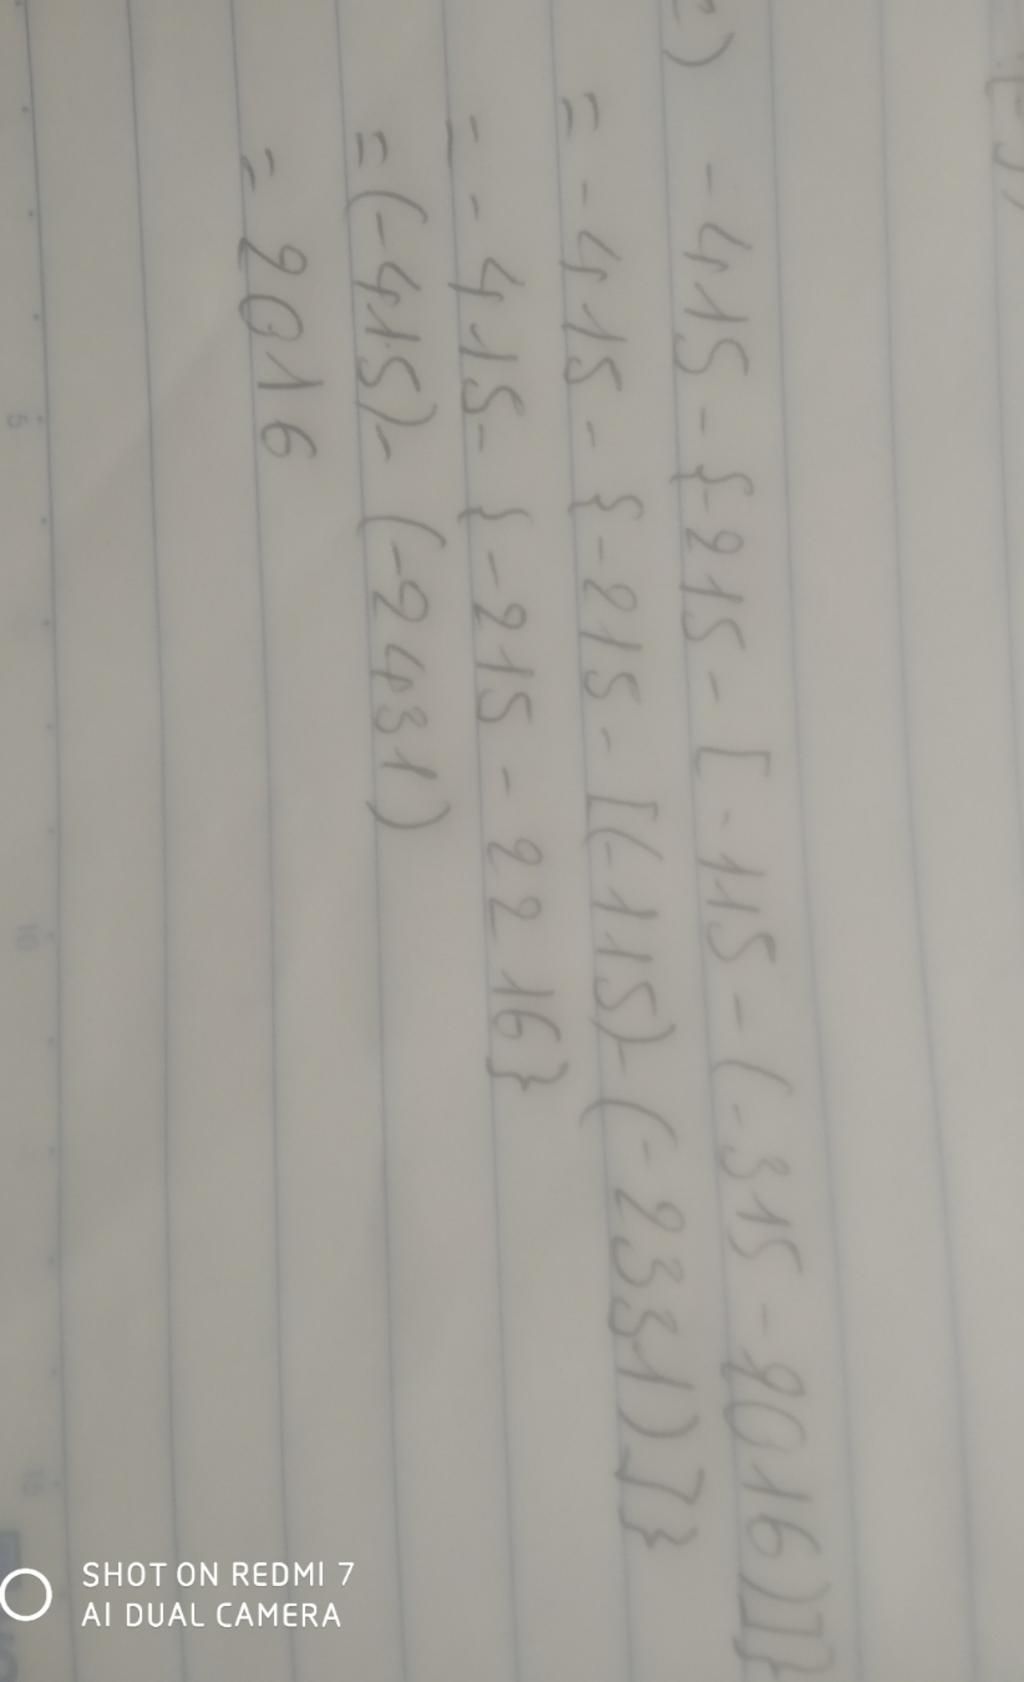 c) -415 - {-215 - [-115 - (-315 - 2016)]}
= -415 - {-215 - [(-115) - (-2331)]}
= -415 - {-215 - 2216}
= (-415) - (-2431)
= 2016
5
10
15
SHOT ON REDMI 7
AI DUAL CAMERA